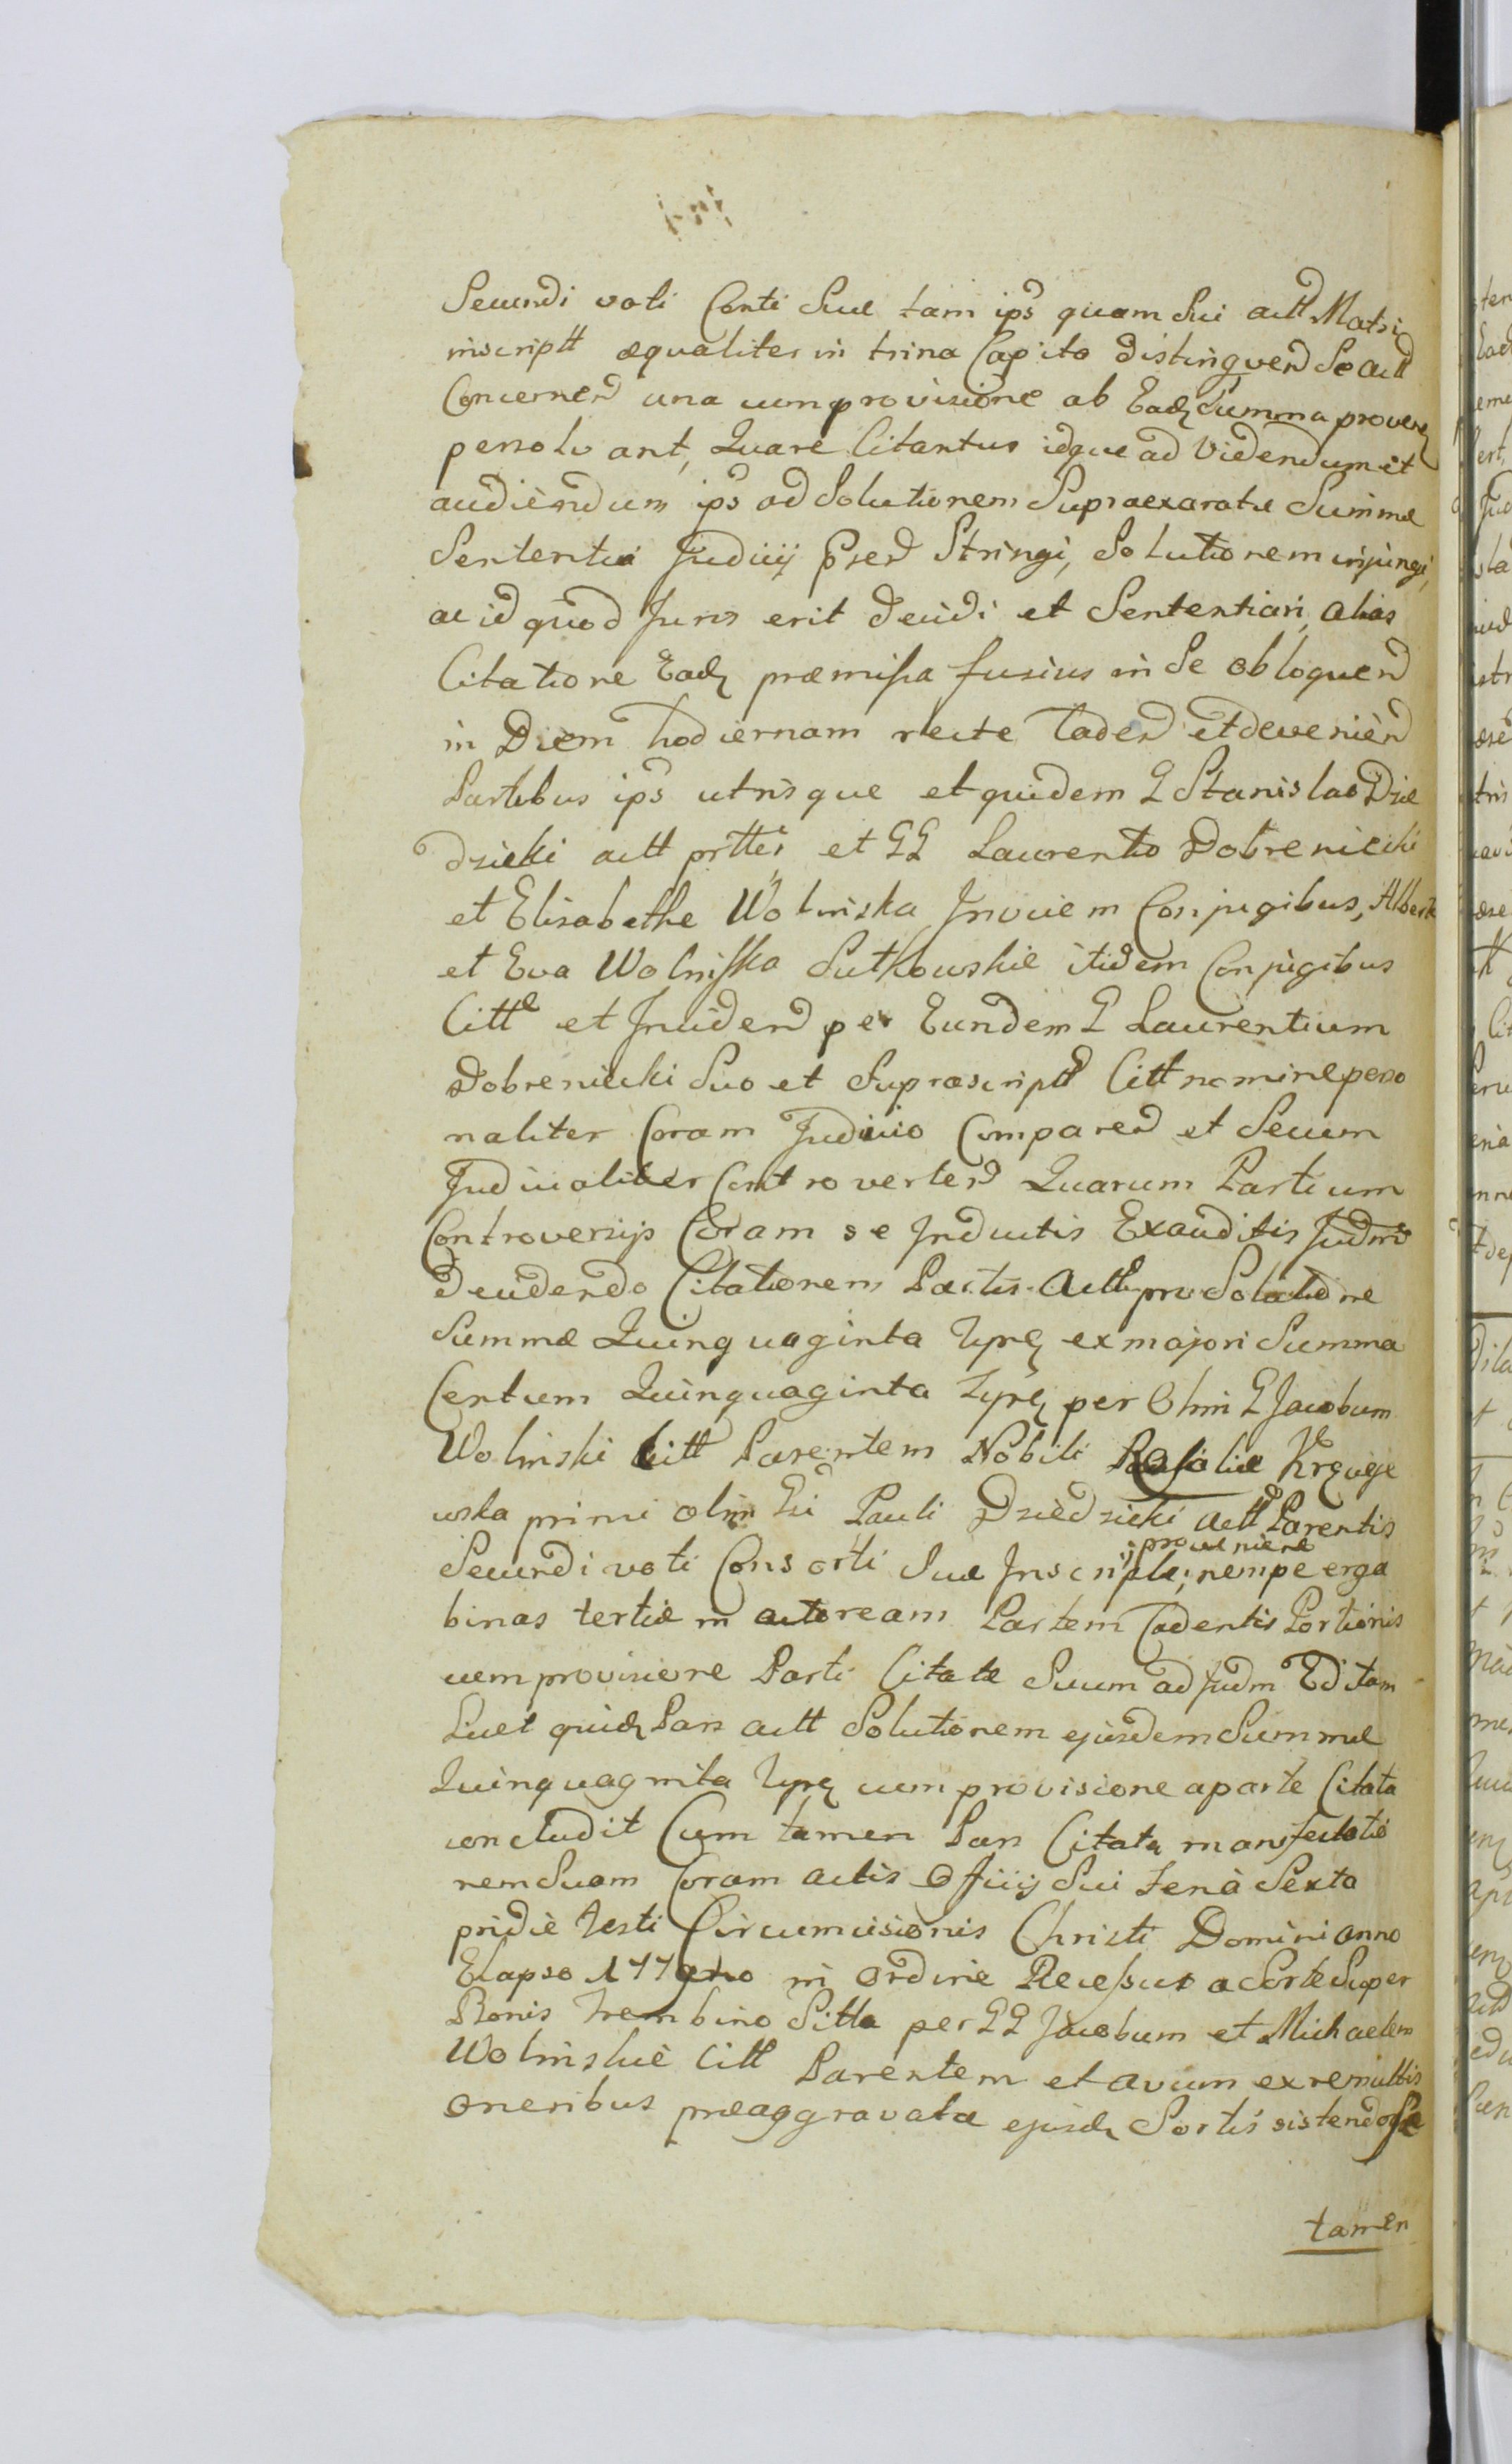 Secundi voti Conti Suae tam ips quam Sui actt Matri
inscriptt aequaliter in trina Capita distinguend Se actt
Concernen una cum provisione ab Eadq Summa proven
persolvant, Quare Citantur idque ad Videndum et
audiendum ips ad Solutionem Supraexaratae Summae
Sententia Judicij Praed Stringi, Solutionem injungi,
ac id quod Juris erit decidi et Sententiari, alias
Citatione Eadq praemissa fusius in Se obloquend
in Diem hodiernam recte Caden et devenien
Partibus ips utrisque et quidem G Stanislao Dzie
dzicki actt prtter et GG Laurentio Dobreniecki
et Elisabethe Wolinska Invicem Conjugibus, Alberto
et Eva Wolinska Sutkowskie itidem Conjugibus
Citt et Inciden per Eundem G Laurentium
Dobreniecki Suo et Suprascriptt Citt nomine perso
naliter Coram Judicio Comparen et Secum
Judicialiter Controverten Quarum Partium
Controversijs Coram se Inductis Exauditis Judm
decidendo Citationem Partis Actt pro Solutione
Summae Quinquaginta Typq ex majori Summa
Centum Quinquaginta Typq per Olim G Jacobum
Wolinski Citt Parentem Nobili Rosaliae
wska primi olim Pauli Dziedzicki actt Parentis
Secundi voti Consorti Suae Inscriptae, nempe erga
proveniene
binas tertiae in actoream Partem Cadentis Portionis
cum provisione Parti Citatae Suum ad Judm Editam
Licet quidq Pars actt Solutionem ejusdem Summae
Quinquaginta Typq cum provisione a parte Citata
concludit Cum tamen Pars Citata manifestatio
nem Suam Coram actis Officij Sui Feria Sexta
pridie Festi Circumcisionis Christi Domini anno
Elapso in ordine Recessus a Sorte Super
Bonis Trembino Sitta per GG Jacobum et Michaelem
Wolinskie Citt Parentem et avum ex remultis
oneribus praeaggravata ejusdq Sortis sistendo Se
tamen